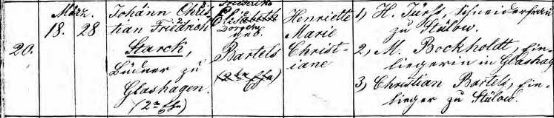 März.
20. 18. 28
Johann Chris-
tian Friedrich
Starck,
Büdner zu
Glashagen.
(2te Ehe)
Friederike
Elisabeth
Dorothea
geb.
Bartels
(2te Ehe)
Henriette
Marie
Christ-
iane
1, H. Fürst,
zu Stülow.
2, M. Bockholdt, Ein-
liegerin in Glashag
3, Christian Bartels, Ein-
lieger zu Stülow.